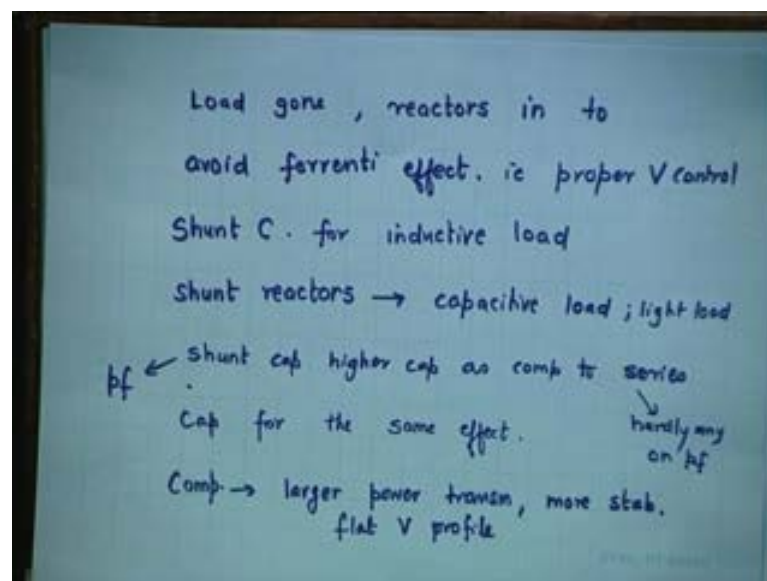 Load gone, reactors in to
avoid ferrenti effect. ie proper V control
Shunt C. for inductive load
Shunt reactors → capacitive load ; light load
pf ← shunt cap higher cap as comp to series
Cap for the same effect.
hardly any
on pf
Comp. → larger power transn, more stab.
flat V profile